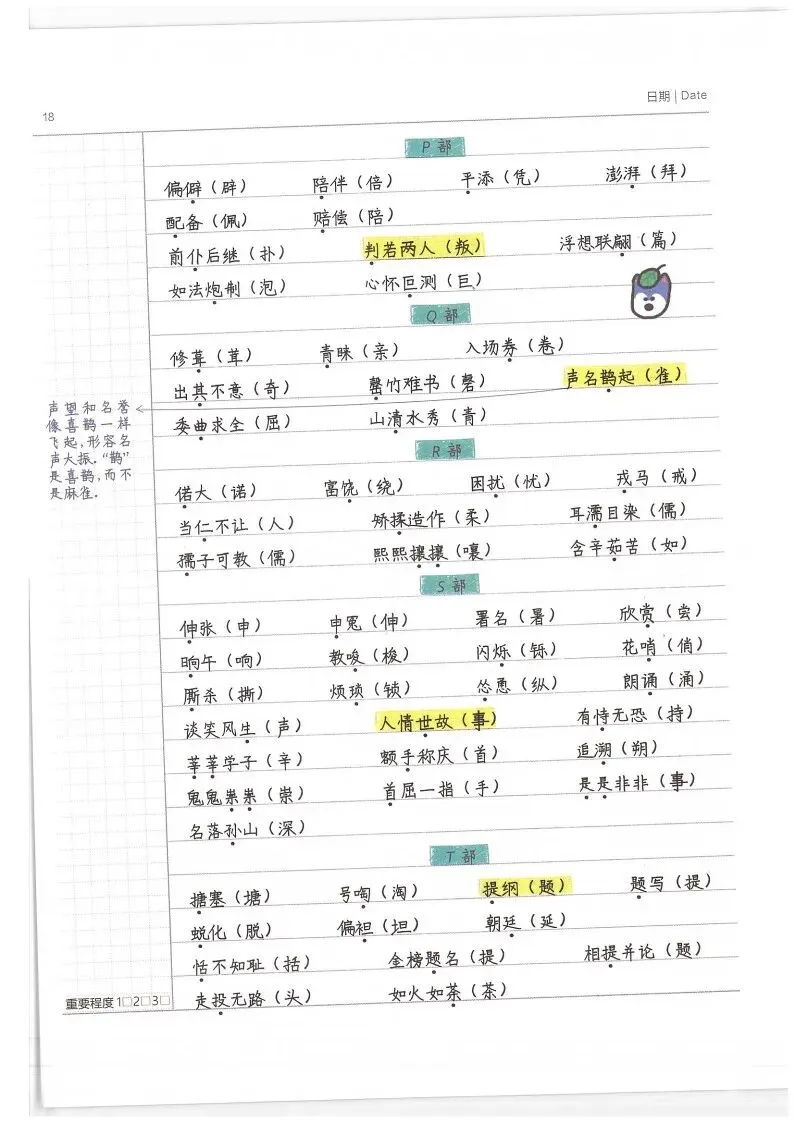 日期 | Date
18
P 部
偏僻（辟） 陪伴（倍） 平添（凭） 澎湃（拜）
配备（佩） 赔偿（陪）
前仆后继（扑） 判若两人（叛） 浮想联翩（篇）
如法炮制（泡） 心怀叵测（巨）
Q 部
修葺（茸） 青睐（亲） 入场券（卷）
出其不意（奇） 罄竹难书（磬） 声名鹊起（雀）
委曲求全（屈） 山清水秀（青）
声望和名誉
像喜鹊一样
飞起，形容名
声大振。“鹊”
是喜鹊，而不
是麻雀。
R 部
偌大（诺） 富饶（绕） 困扰（忧） 戎马（戒）
当仁不让（人） 矫揉造作（柔） 耳濡目染（儒）
孺子可教（儒） 熙熙攘攘（嚷） 含辛茹苦（如）
S 部
伸张（申） 申冤（伸） 署名（暑） 欣赏（尝）
晌午（响） 教唆（梭） 闪烁（铄） 花哨（俏）
厮杀（撕） 烦琐（锁） 怂恿（纵） 朗诵（涌）
谈笑风生（声） 人情世故（事） 有恃无恐（持）
莘莘学子（辛） 额手称庆（首） 追溯（朔）
鬼鬼祟祟（崇） 首屈一指（手） 是是非非（事）
名落孙山（深）
T 部
搪塞（塘） 号啕（淘） 提纲（题） 题写（提）
蜕化（脱） 偏袒（坦） 朝廷（延）
恬不知耻（括） 金榜题名（提） 相提并论（题）
走投无路（头） 如火如荼（茶）
重要程度 1□2□3□